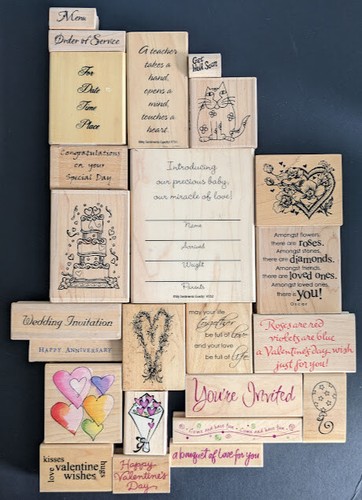 Menu
Order of Service
For
Date
Time
Place
A teacher
takes a
hand,
opens a
mind,
touches a
heart.
Get
Well Soon
Congratulations
on your
Special Day
Introducing
our precious baby,
our miracle of love!
Name
Arrived
Weight
Parents
Amongst flowers,
there are roses.
Amongst stones,
there are diamonds.
Amongst friends,
there are loved ones.
Amongst loved ones
there is
you!
Wedding Invitation
HAPPY ANNIVERSARY
may your life
together
be full of
and your love
be full of life
Roses are red
violets are blue
a Valentine's day wish
just for you!
You're Invited
kisses
love
valentine
wishes
hugs
Happy
Valentine's
Day
a bouquet of love for you